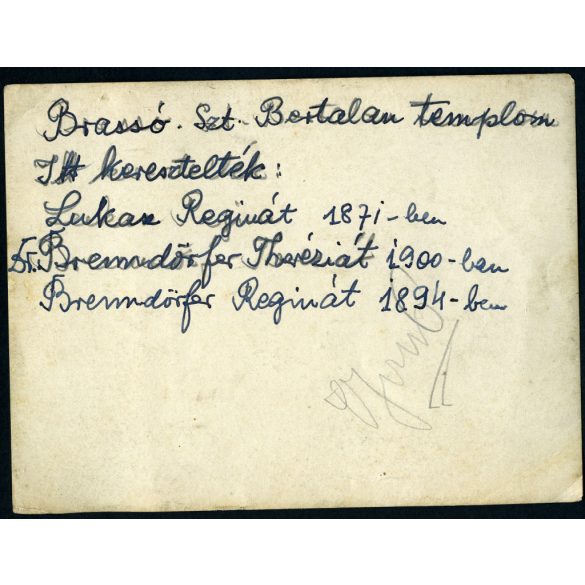 Brassó. Szt. Bertalan templom
Itt keresztelték:
Lukas Reginát 1871-ben
Dr. Brenndörfer Theréziát 1900-ban
Brenndörfer Reginát 1894-ben